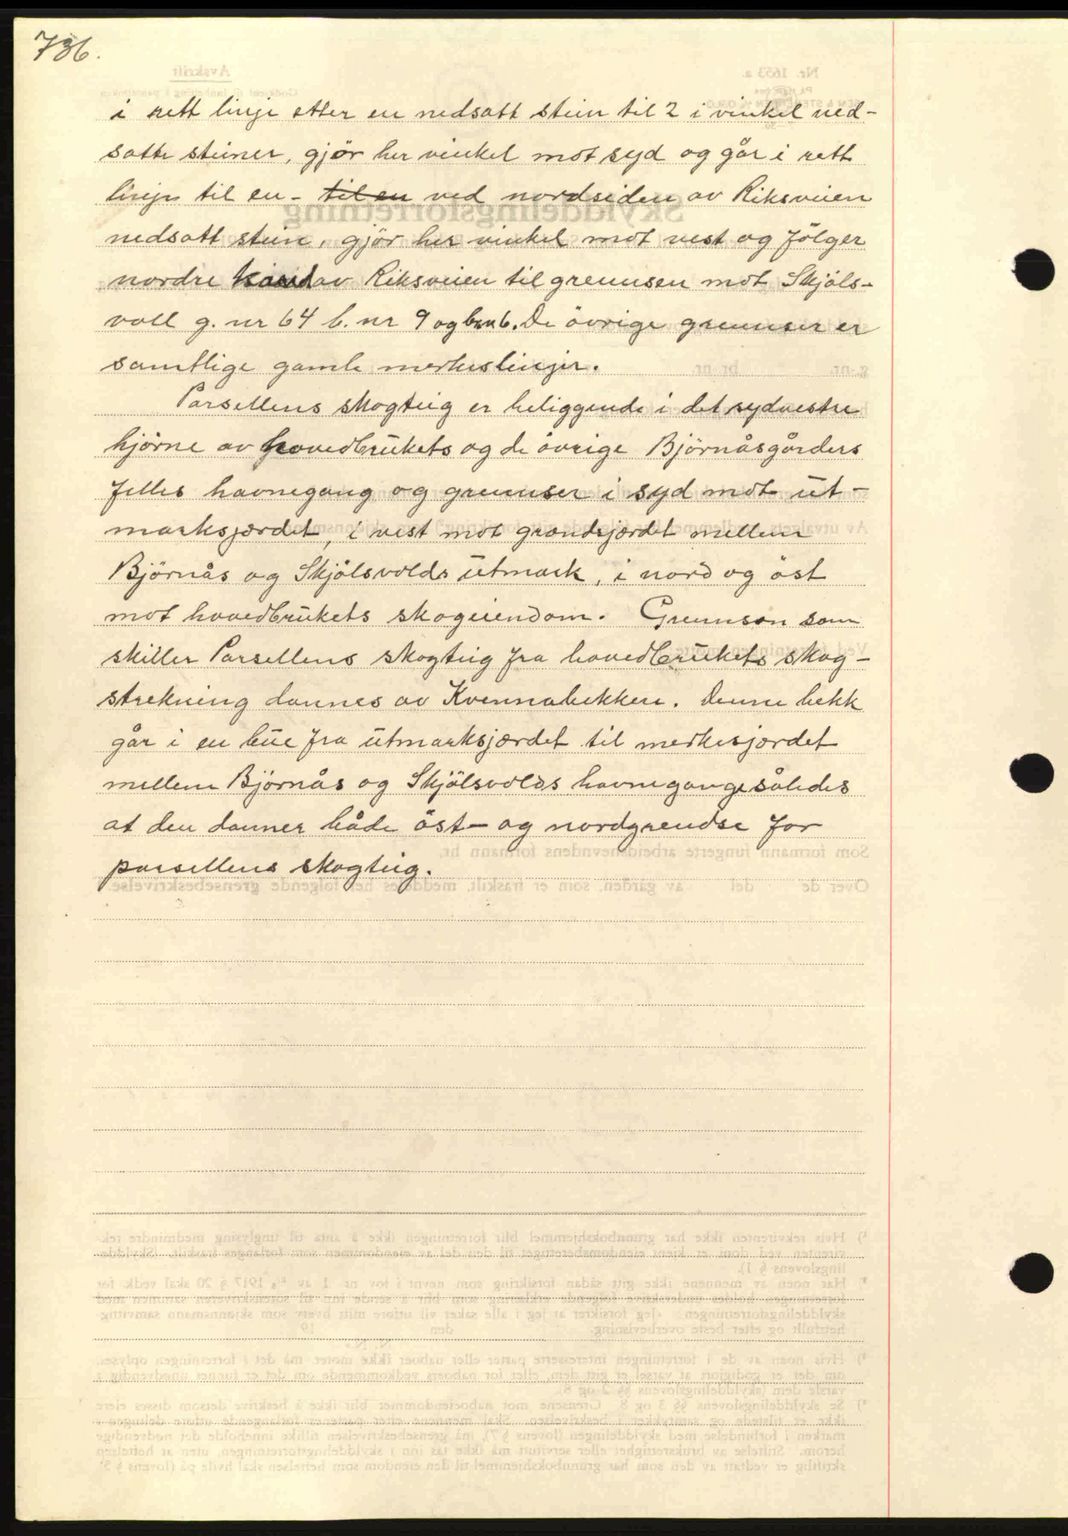 736.
i rett linje etter en nedsatt stein til 2 i vinkel ned-
satte steiner, gjör her vinkel mot syd og går i rett
linje til en - til en ved nordsiden av Riksveien
nedsatt stein, gjör her vinkel mot vest og fölger
nordre kand av Riksveien til grennsen mot Skjöls-
voll g. nr 64 b. nr 9 og bnr 6. De övrige grennser er
samtlige gamle merkeslinjer.
Parsellens skogteig er beliggende i det sydvestre
hjörne av hovedbrukets og de övrige Björnåsgårders
felles havnegang og grennser i syd mot ut-
marksjærdet, i vest mot grandsjærdet mellem
Björnås og Skjölsvolds utmark, i nord og öst
mot hovedbrukets skogeiendom. Grennsen som
skiller Parsellens skogteig fra hovedbrukets skog-
strekning dannes av Kvennabekken. Denne bekk
går i en bue fra utmarksjærdet til merkesjærdet
mellem Björnås og Skjölsvolds havnegange således
at den danner både öst- og nordgrendse for
parsellens skogteig.